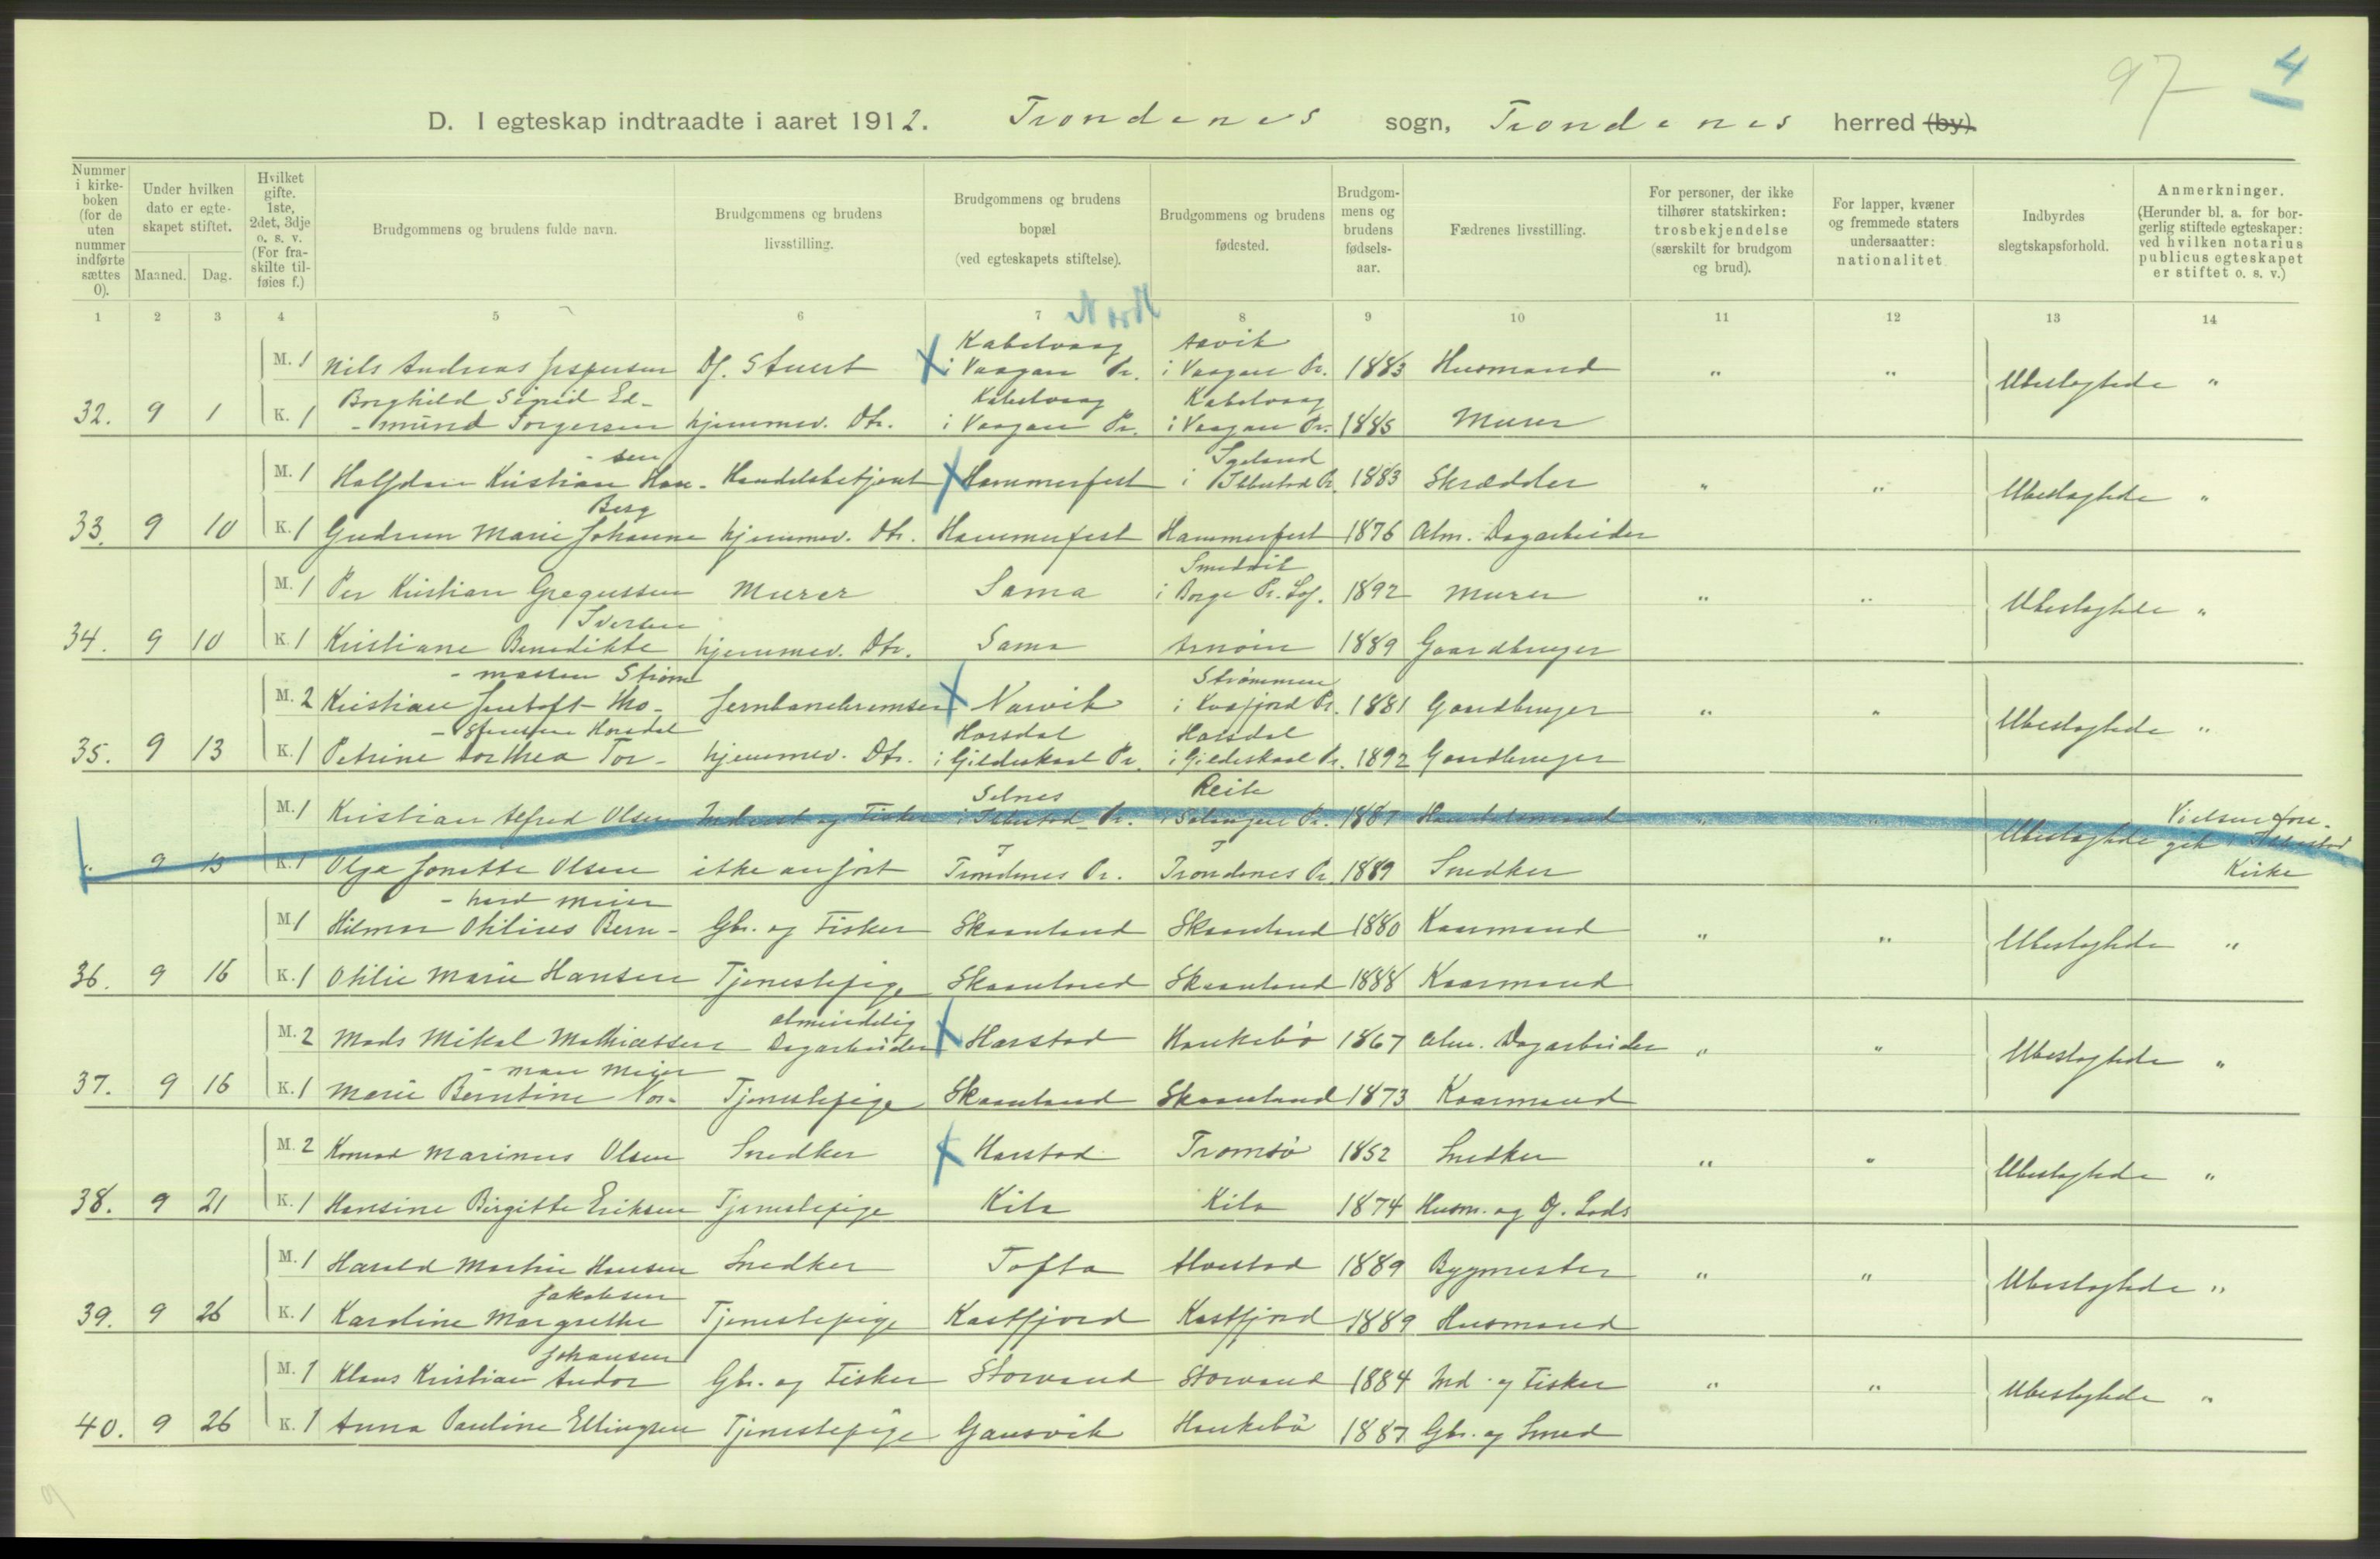 97 4
D. I egteskap indtraadte i aaret 1912. Trondenes sogn, Trondenes herred (by).
Nummer i kirkeboken (for de uten nummer indførte sættes 0).
Under hvilken dato er egteskapet stiftet.
Maaned. Dag.
Hvilket gifte. 1ste, 2det, 3dje o. s. v. (For fraskilte tilføies f.)
Brudgommens og brudens fulde navn.
Brudgommens og brudens livsstilling.
Brudgommens og brudens bopæl (ved egteskapets stiftelse).
Brudgommens og brudens fødested.
Brudgommens og brudens fødselsaar.
Fædrenes livsstilling.
For personer, der ikke tilhører statskirken: trosbekjendelse (særskilt for brudgom og brud).
For lapper, kvæner og fremmede staters undersaatter: nationalitet
Indbyrdes slegtskapsforhold.
Anmerkninger. (Herunder bl. a. for borgerlig stiftede egteskaper: ved hvilken notarius publicus egteskapet er stiftet o. s. v.)
1 2 3 4 5 6 7 8 9 10 11 12 13 14
Kabelvaag
M. 1 Nils Andreas Jespersen D/. Stuert X i Vaagan Pr. i Vaagan Pr. 1883 Husmand " " Ubeslegtede "
Borghild Sigrid Ed- Kabelvaag Kabelvaag
32. 9 1 K. 1 -mund Torgersen hjemmev. Dtr. i Vaagan Pr. i Vaagan Pr. 1885 Murer
-sen
M. 1 Halfdan Kristian Han- Handelsbetjent X Hammerfest i Ibbestad Pr. 1883 Skrædder " " Ubeslegtede "
Berg
33. 9 10 K. 1 Gudrun Marie Johanne hjemmev. Dtr. Hammerfest Hammerfest 1876 Alm. Dagarbeider
M. 1 Per Kristian Gregussen Murer Sama i Borge Pr. Lof. 1892 Murer " " Ubeslegtede "
Iversen
34. 9 10 K. 1 Kristiane Benedikte hjemmev. Dtr. Sama Arnøien 1889 Gaardbruger
-massen Strøm Strømmen
M. 2 Kristian Jentoft Tho- Jernbanebremser X Narvik i Kvæfjord Pr. 1881 Gaardbruger " " Ubeslegtede "
-stensen Horsdal Horsdal Horsdal
35. 9 13 K. 1 Petrine Dorthea Tor- hjemmev. Dtr. i Gildeskaal Pr. i Gildeskaal Pr. 1892 Gaardbruger
Selnes Reite
M. 1 Kristian Alfred Olsen Inderst og Fisker i Ibbestad Pr. i Salangen Pr. 1887 Handelsmand " " Ubeslegtede Vielsen fore-
" 9 13 K. 1 Olga Jonette Olsen ikke anført Trondenes Pr. Trondenes Pr. 1889 Snedker gik i Ibbestad
Kirke
-hard Meier
M. 1 Hilmar Othilius Bern- Gbr. og Fisker Skaanland Skaanland 1880 Kaarmand " " Ubeslegtede "
36. 9 16 K. 1 Othilie Marie Hansen Tjenestepige Skaanland Skaanland 1888 Kaarmand
almindelig
M. 2 Mads Mikal Mathiassen Dagarbeider X Harstad Haukebø 1867 Alm. Dagarbeider " " Ubeslegtede "
-man Meier
37. 9 16 K. 1 Marie Berntine Nor- Tjenestepige Skaanland Skaanland 1873 Kaarmand
M. 2 Konrad Marinius Olsen Snedker X Harstad Tromsø 1852 Snedker " " Ubeslegtede "
38. 9 21 K. 1 Hansine Birgitte Eriksen Tjenestepige Kila Kila 1874 Husm. og D/. Lods
M. 1 Harald Martin Hansen Snedker Tofta Alvestad 1889 Bygmester " " Ubeslegtede "
Jakobsen
39. 9 26 K. 1 Karoline Margrethe Tjenestepige Kastfjord Kastfjord 1889 Husmand
Johansen
M. 1 Klaus Kristian Andor Gbr. og Fisker Storvand Storvand 1884 Ind. og Fisker " " Ubeslegtede "
40. 9 26 K. 1 Anna Pauline Ellingsen Tjenestepige Gausvik Haukebø 1887 Gbr. og Smed
9